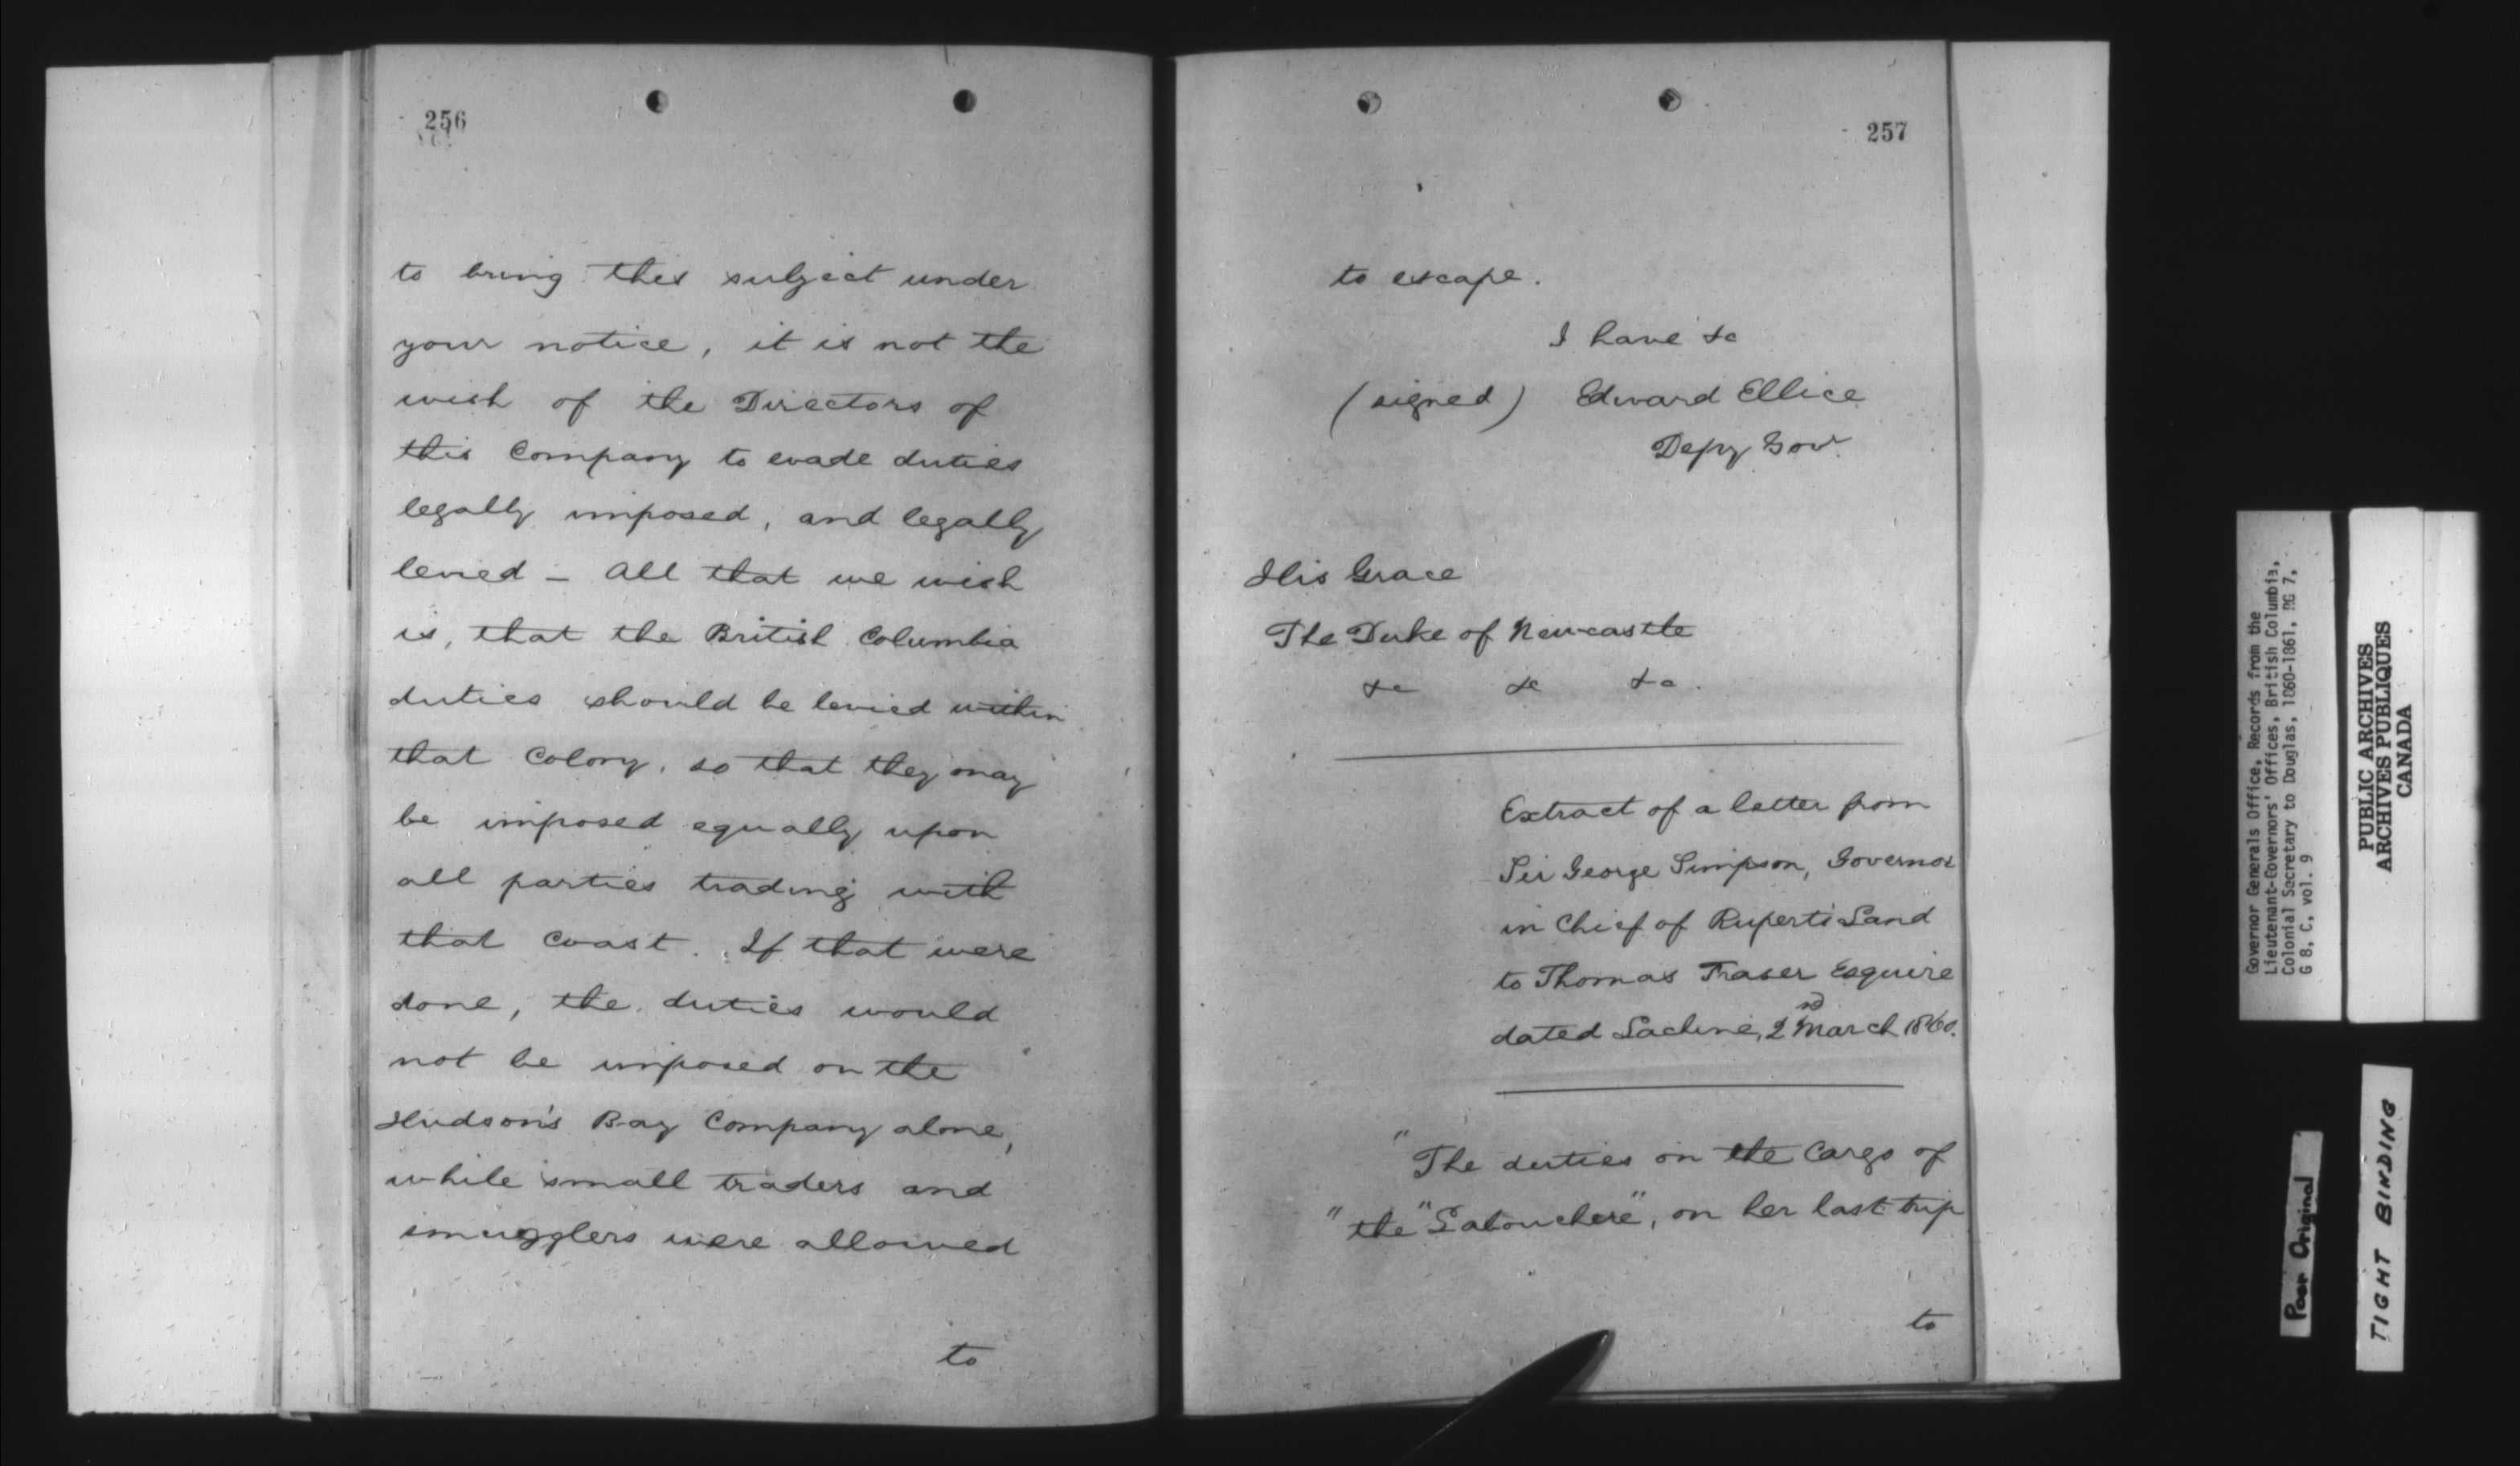 256
to bring this subject under
your notice, it is not the
wish of the Directors of
this Company to evade duties
legally imposed, and legally
levied - All that we wish
is, that the British Columbia
duties should be levied within
that Colony, so that they may
be imposed equally upon
all parties trading with
that Coast. If that were
done, the duties would
not be imposed on the
Hudson's Bay Company alone,
while small traders and
smugglers were allowed
to
257
to escape.
I have &c
(signed) Edward Ellice
Depy Govr
His Grace
The Duke of Newcastle
&c &c &c.
Extract of a letter from
Sir George Simpson, Governor
in Chief of Rupert's Land
to Thomas Fraser Esquire
dated Lachine, 2nd March 1860.
"The duties on the Cargo of
"the "Labouchere", on her last trip
to
Governor Generals Office, Records from the
Lieutenant-Governors' Offices, British Columbia,
Colonial Secretary to Douglas, 1860-1861, RG 7,
G 8, C, vol. 9
PUBLIC ARCHIVES
ARCHIVES PUBLIQUES
CANADA
Poor Original
TIGHT BINDING